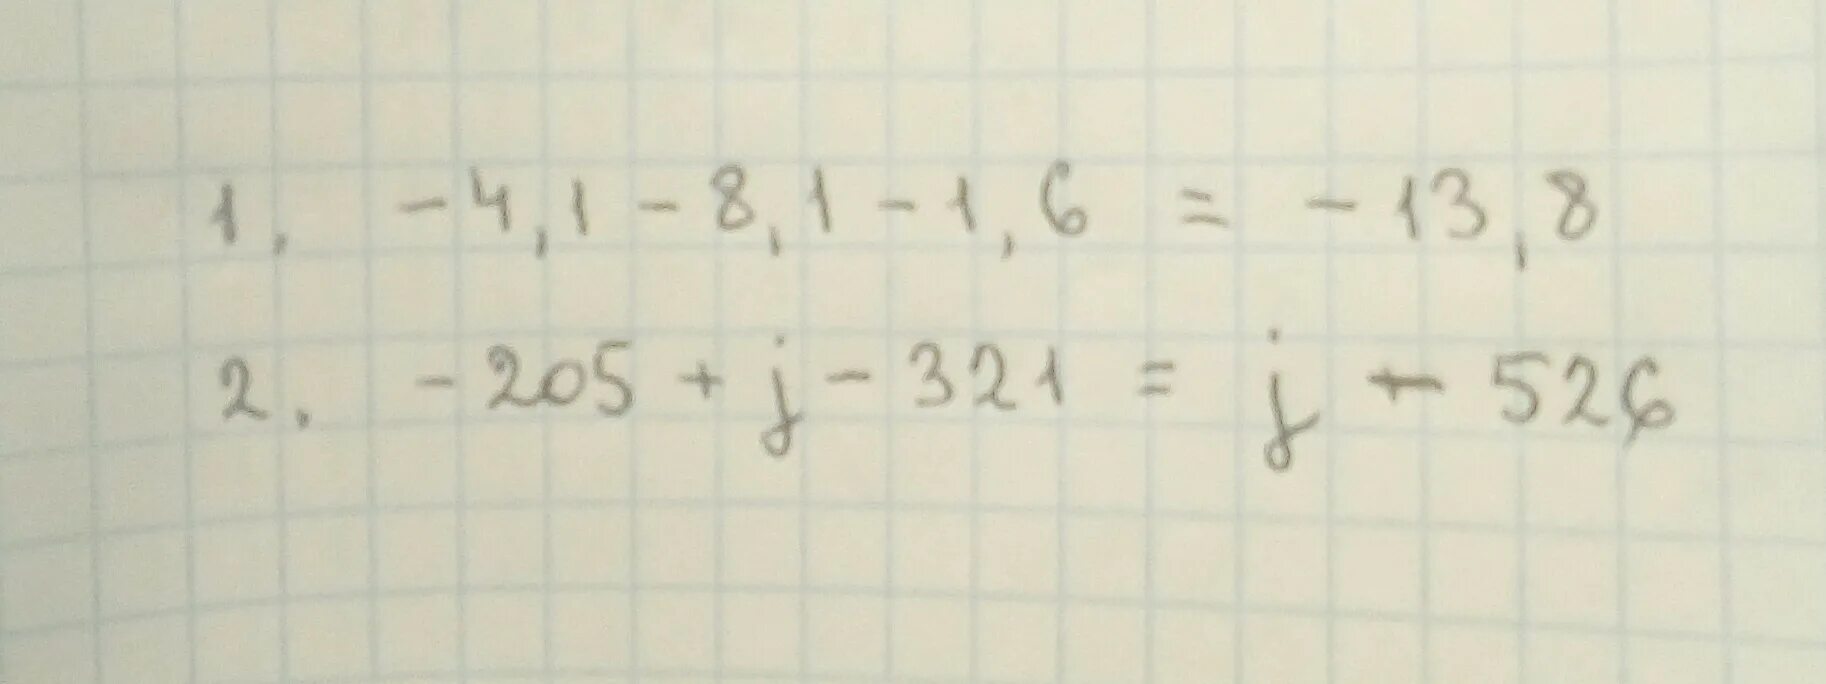 1. -4,1-8,1-1,6 = -13,8
2. -205 + j - 321 = j - 526